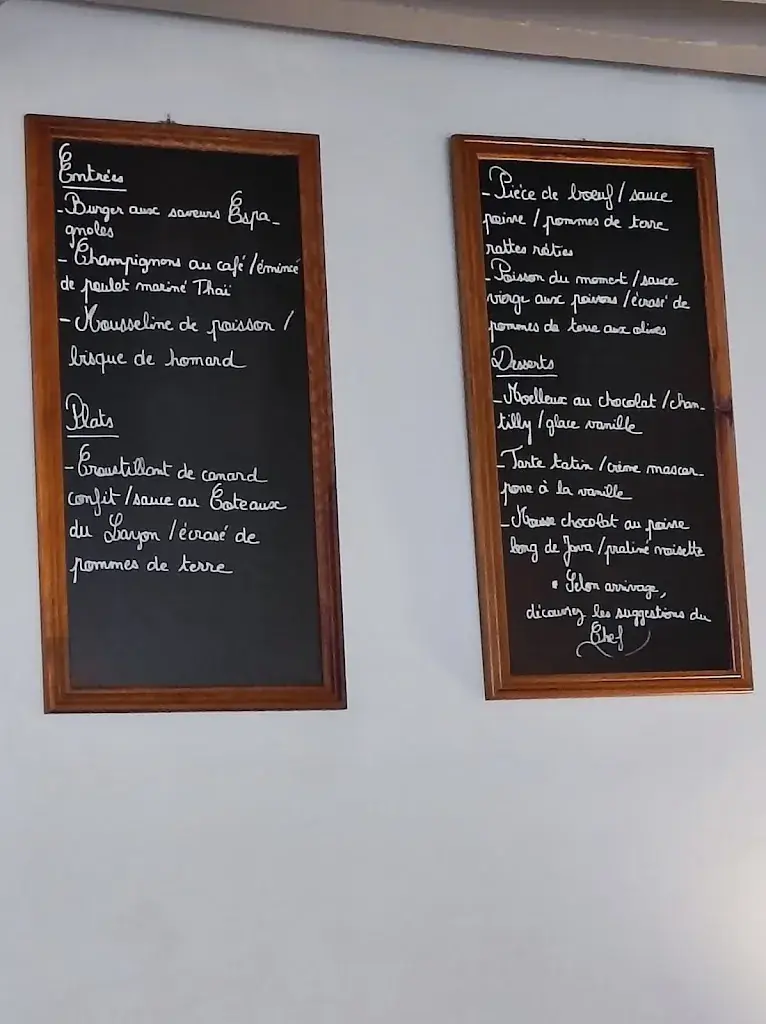 Entrées
- Burger aux saveurs Espa-
gnoles
- Champignons au café / émincé
de poulet mariné Thaï
- Mousseline de poisson /
bisque de homard
Plats
- Croustillant de canard
confit / sauce au Coteaux
du Layon / écrasé de
pommes de terre
- Pièce de boeuf / sauce
poivre / pommes de terre
rattes rôties
- Poisson du moment / sauce
vierge aux poivrons / écrasé de
pommes de terre aux olives
Desserts
- Moelleux au chocolat / chan-
tilly / glace vanille
- Tarte tatin / crème mascar-
pone à la vanille
- Mousse chocolat au poivre
long de Java / praliné noisette
• Selon arrivage,
découvrez les suggestions du
Chef